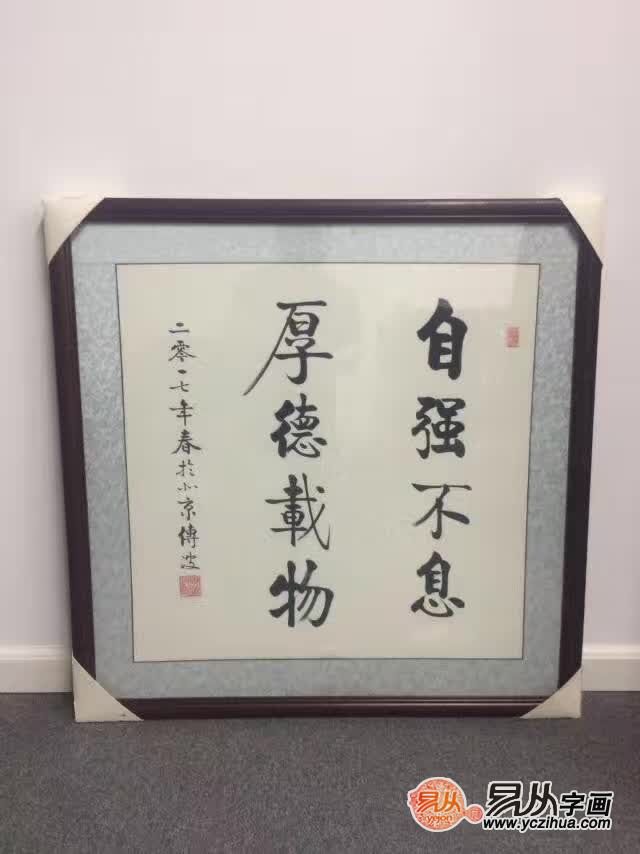 自强不息
厚德載物
二零一七年春於北京傅波
易从字画
www.yczihua.com
易从
ycion